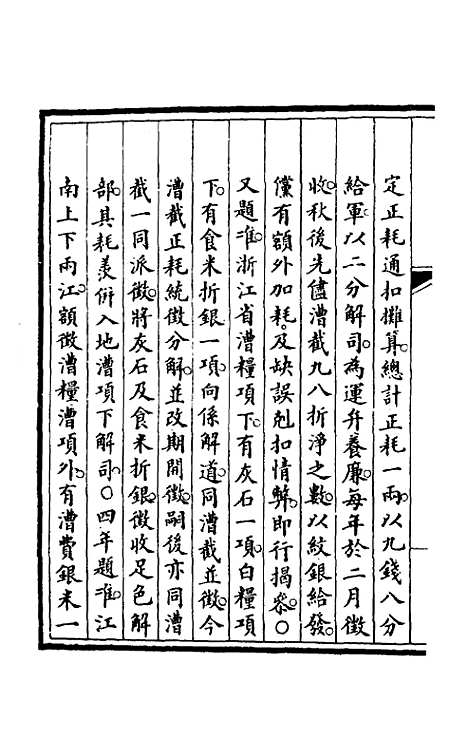 定正耗通扣攤算。總計正耗一兩。以九錢八分
給軍。以二分解司。為運弁養廉。每年於二月徵
收。秋後先儘漕截九八折淨之數。以紋銀給發。
儻有額外加耗。及缺誤剋扣情弊。卽行揭參。〇
又題准。浙江省漕糧項下。有灰石一項。白糧項
下。有食米折銀一項。向係解道。同漕截並徵。今
漕截正耗統徵分解。並改期開徵。嗣後亦同漕
截一同派徵。將灰石及食米折銀。徵收足色解
部。其耗羨併入地漕項下解司。〇四年題准。江
南上下兩江。額徵漕糧漕項外。有漕費銀米一